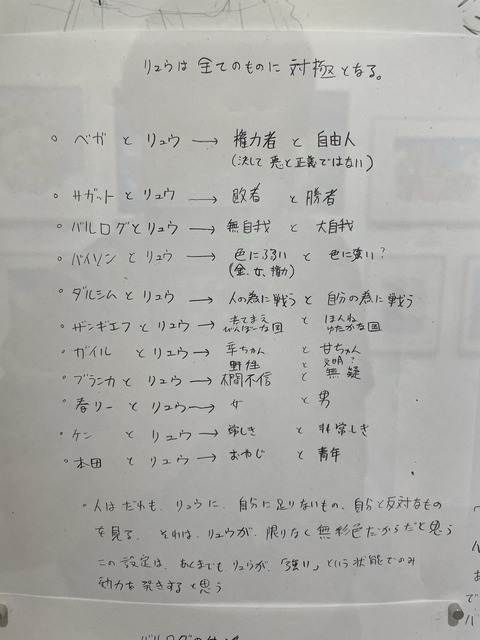 リュウは 全てのものに 対極となる。
○ ベガ と リュウ → 権力者 と 自由人
(決して 悪と正義ではない)
○ サガットとリュウ → 敗者 と 勝者
○ バルログとリュウ → 無自我 と 大自我
○ バイソンとリュウ → 色に弱い と 色に強い?
(金、女、権力)
○ ダルシムとリュウ → 人の為に戦う と 自分の為に戦う
・ ザンギエフとリュウ → たてまえ と ほんね
びんぼーな国 ゆたかな国
○ ガイル とリュウ → 辛ちゃん と 甘ちゃん
野性 と 文明?
・ ブランカ とリュウ → 人間不信 と 無疑
・ 春リー とリュウ → 女 と 男
・ ケン とリュウ → 常しき と 非常しき
・ 本田 とリュウ → おやじ と 青年
・ 人はだれも、リュウに、自分に足りないもの、自分と反対なもの
を見る、それは、リュウが、限りなく 無彩色だからだと思う
この設定は、あくまでもリュウが、「強い」という状態でのみ
効力を発きすると思う
バルログの